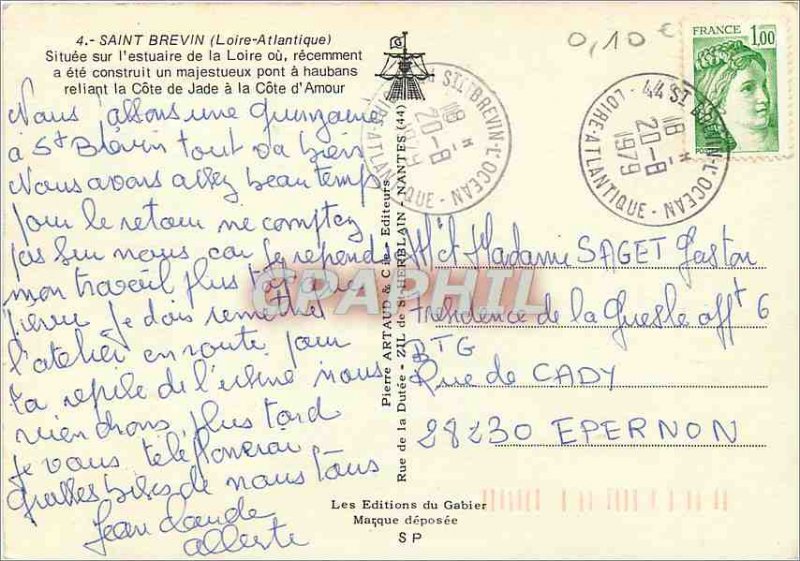 4.- SAINT BREVIN (Loire-Atlantique)
Située sur l'estuaire de la Loire où, récemment
a été construit un majestueux pont à haubans
reliant la Côte de Jade à la Côte d'Amour
Nous passons une quinzaine
à St Brévin tout va bien
Nous avons assez beau temps
pour le retour ne comptez
pas sur nous car je reprend
mon travail plus tôt que
je dois remettre
l'atelier en route pour
la reprise de l'usine nous
viendrons plus tard
je vous téléphonerai
grosses bises de nous tous
Jean Claude
Pierre ARTAUD & Cie - Editeurs
Rue de la Dutée - ZIL de St-HERBLAIN - NANTES (44)
44 ST BREVIN-L'OCEAN
18 H
20-8
1979
LOIRE-ATLANTIQUE
0,10 €
FRANCE 1,00
44 ST BREVIN-L'OCEAN
18 H
20-8
1979
LOIRE-ATLANTIQUE
Mr et Madame SAGET Gaston
Résidence de la Guesle appt 6
BTG
Rue de CADY
28230 EPERNON
CPAPHIL
Les Editions du Gabier
Marque déposée
SP